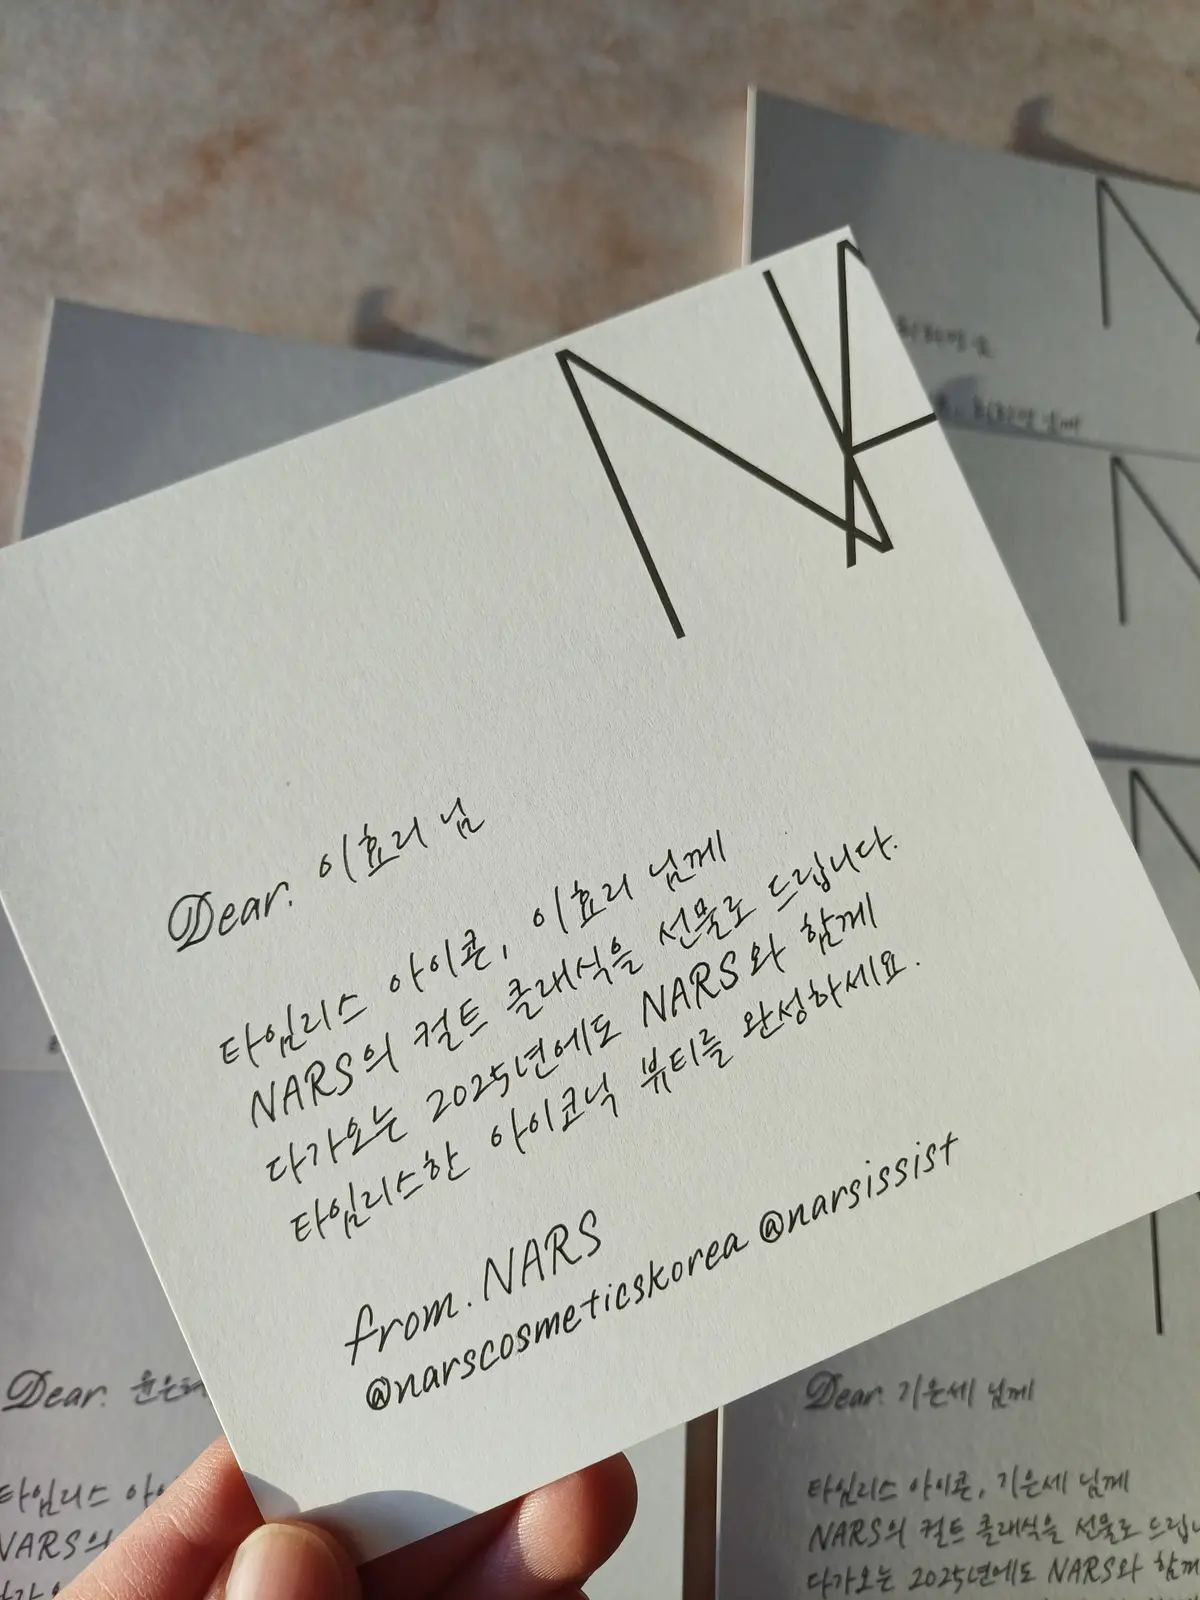 NA
Dear. 이효리 님
타임리스 아이콘, 이효리 님께
NARS의 컬트 클래식을 선물로 드립니다.
다가오는 2025년에도 NARS와 함께
타임리스한 아이코닉 뷰티를 완성하세요.
from. NARS
@narscosmeticskorea @narsissist
N
N
N
Dear. 윤은혜
타임리스 아이
NARS의
Dear. 기은세 님께
타임리스 아이콘, 기은세 님께
NARS의 컬트 클래식을 선물로 드립니
다가오는 2025년에도 NARS와 함께